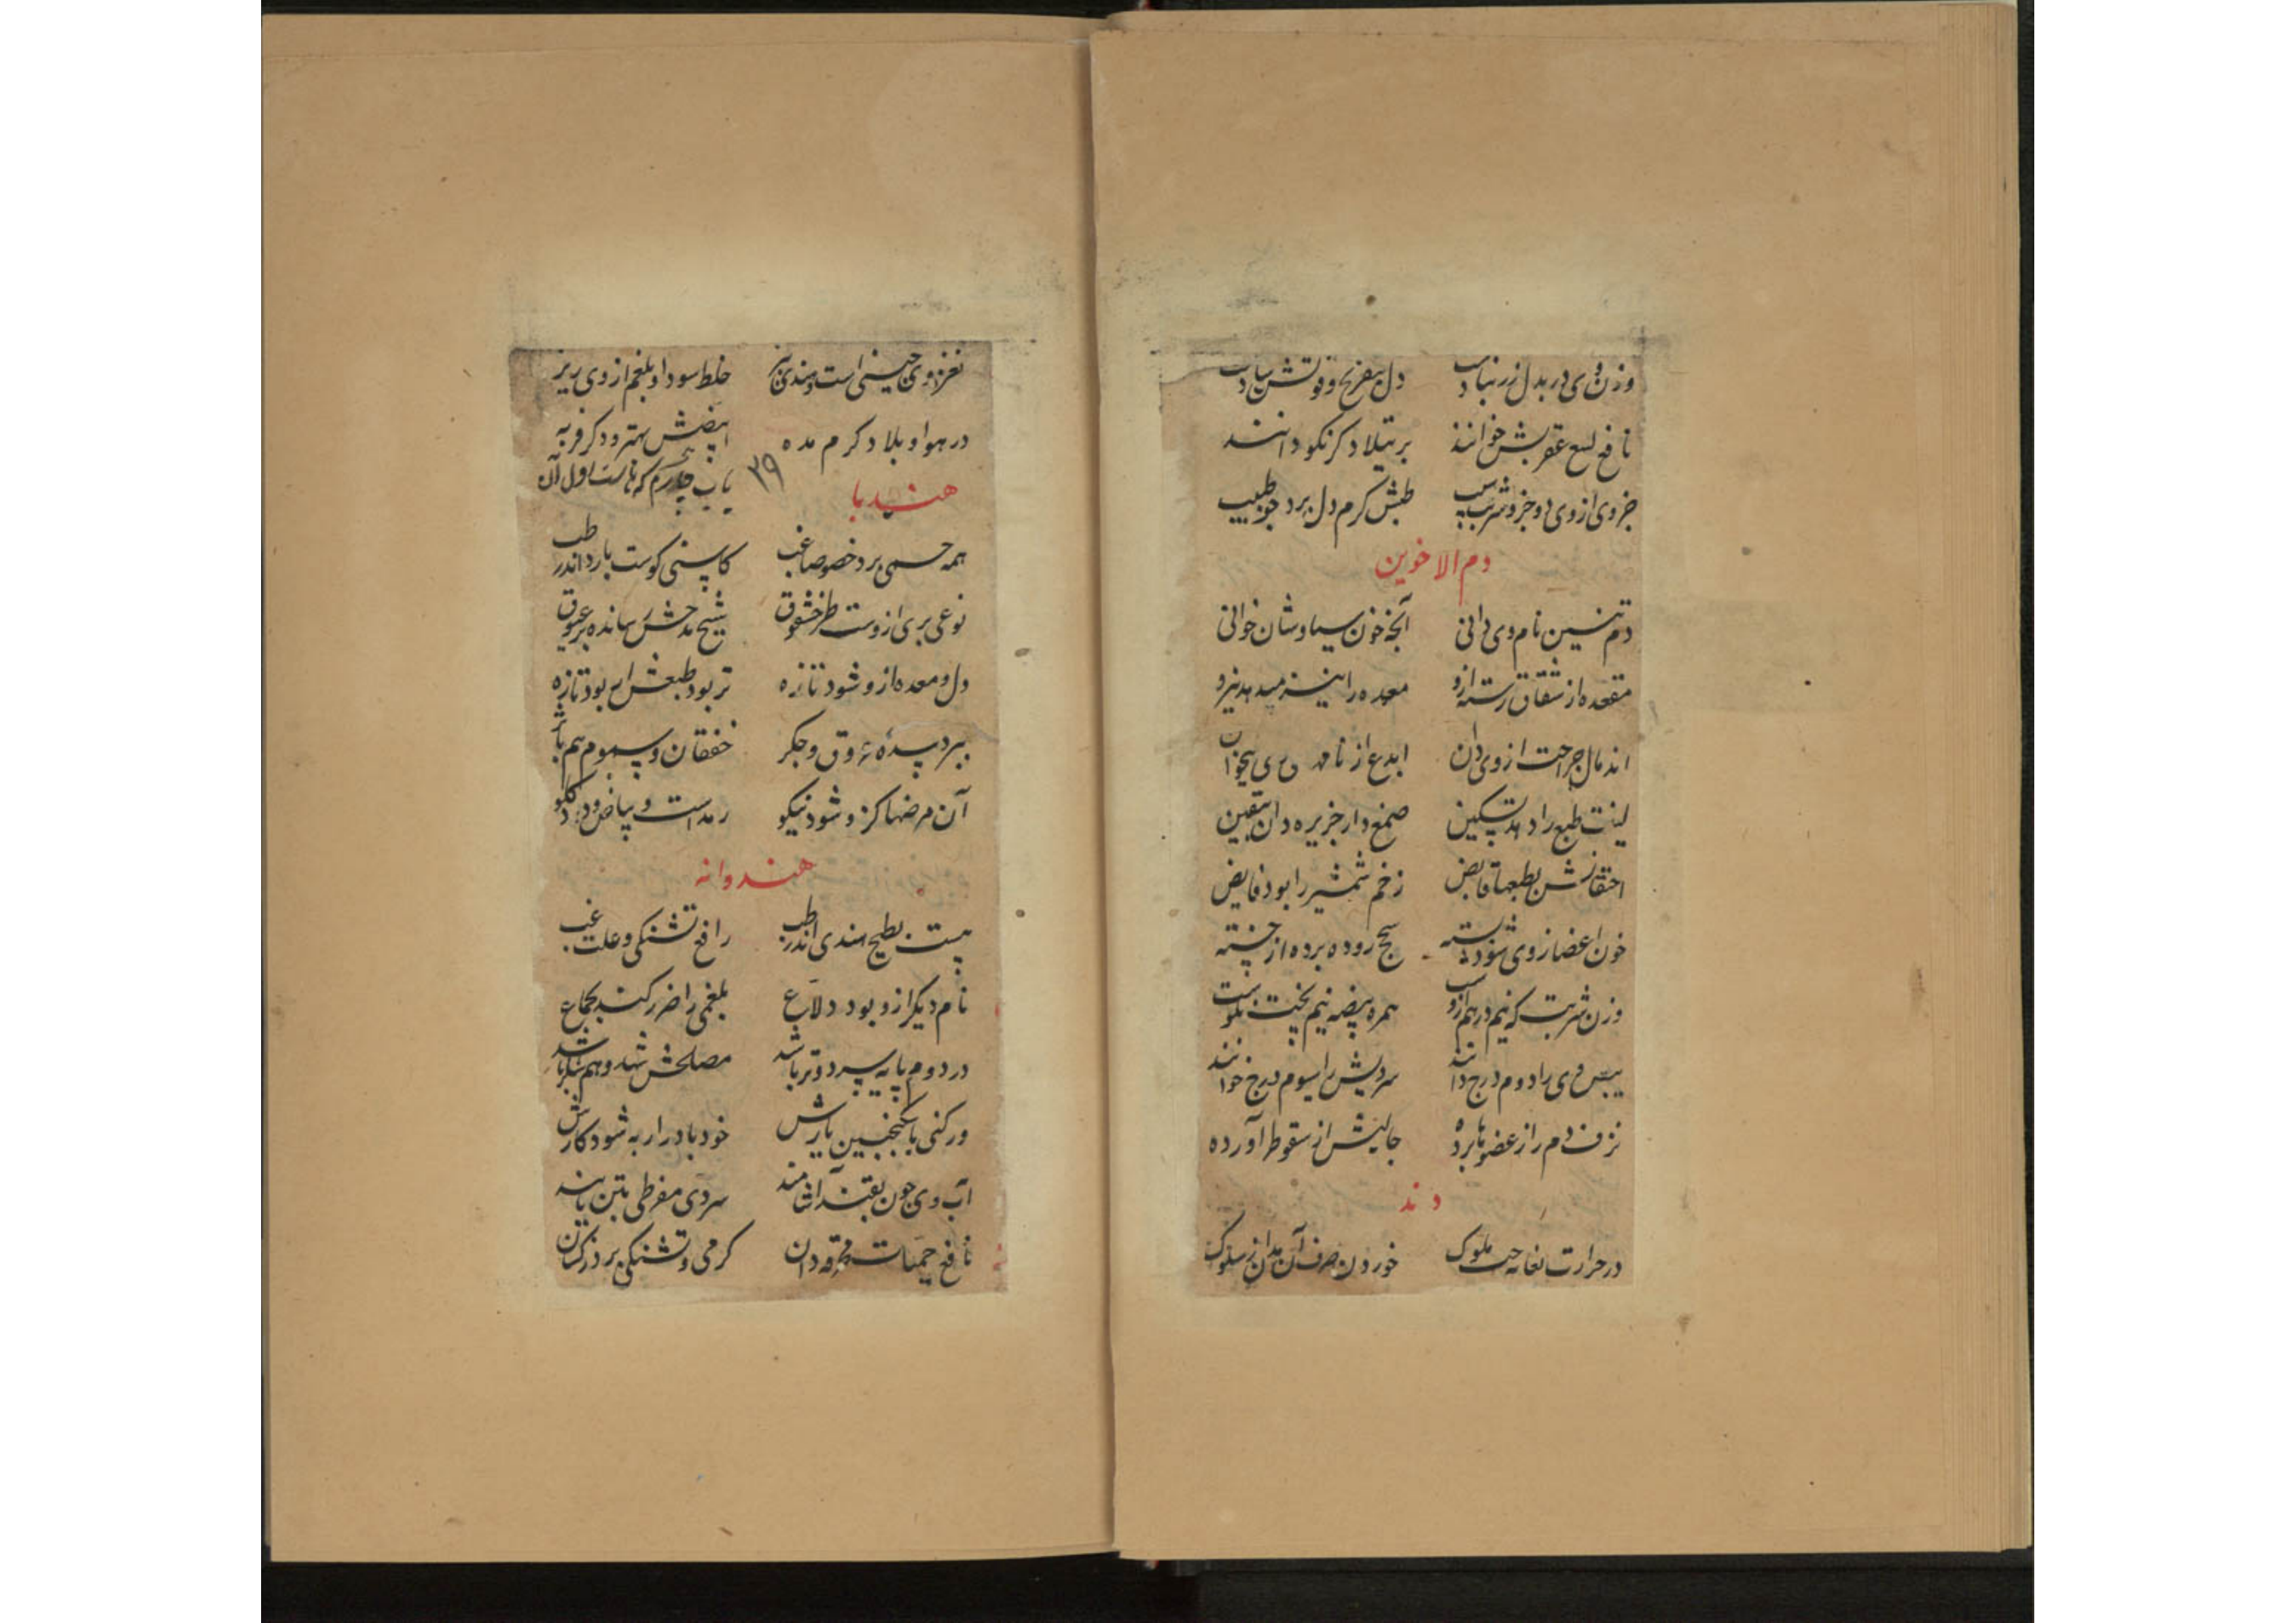 وزن وی در بدل زرنباد است دل بتفریح و قوتش شادست
نافع لسع عقربش خوانند بر تیلا دکر نکو دانند
جزوی از وی دو جزو شرب طبش کرم دل برد جو طبیب
دم الاخوین
دم تنین نام وی دانی آنجه خون سیاوشان خوانی
مقعده از شقاق رسته ازو معده را نیز میدهد نیرو
اندمال جراحت از وی دان ایدع از نام وی میخوان
لینت طبع را دهد تسکین صمغ دار جزیره دان بیقین
احتقانش بطبعها قابض زخم شمشیر را بود فایض
خون اعضا ز وی شود بسته سحج روده برده از خسته
وزن شربت که نیم درهم ازوست همره بیضه نیم پخت نکوست
یبس وی را دوم درج دانند سردیش را سیوم درج خوانند
نزف دم را ز عضوها برده جالیش از سقوطرا آورده
دند
در حرارت بغایه حب ملوک خوردن صرف آن مدان ز سلوک
نغز وی چینی است و هندی نیز خلط سودا و بلغم از وی ریز
در هوا و بلاد کرم مده ابیضش بهتر و دکر فربه
۳۹ باب چارم که هاست اول آن
هندبا
همه حمی برد خصوصا غب کاسنی کوست بارد اندر طب
نوعی بری ازوست طرخشقوق شیخ مدحش رسانده بر عیوق
دل و معده ازو شود تازه تر بود طبعش ار بود تازه
ببرد سده عروق و جکر خفقان و سموم هم
آن مرضها کزو شود نیکو رمدست و بیاض و درد کلو
هندوانه
هست بطیخ هندی اندر طب رافع تشنکی و علت غب
نام دیکر ازو بود دلاع بلغمی را ضرر کند بجماع
در دوم پایه سرد و تر باشد مصلحش شهد و هم شکر باشد
ور کنی با سکنجبین یارش خود بادرار به شود کارش
آب وی جون بقند آشامند سردی مفرطی بتن یابند
نافع حمیات محرقه دان کرمی و تشنکی برد ز کسان